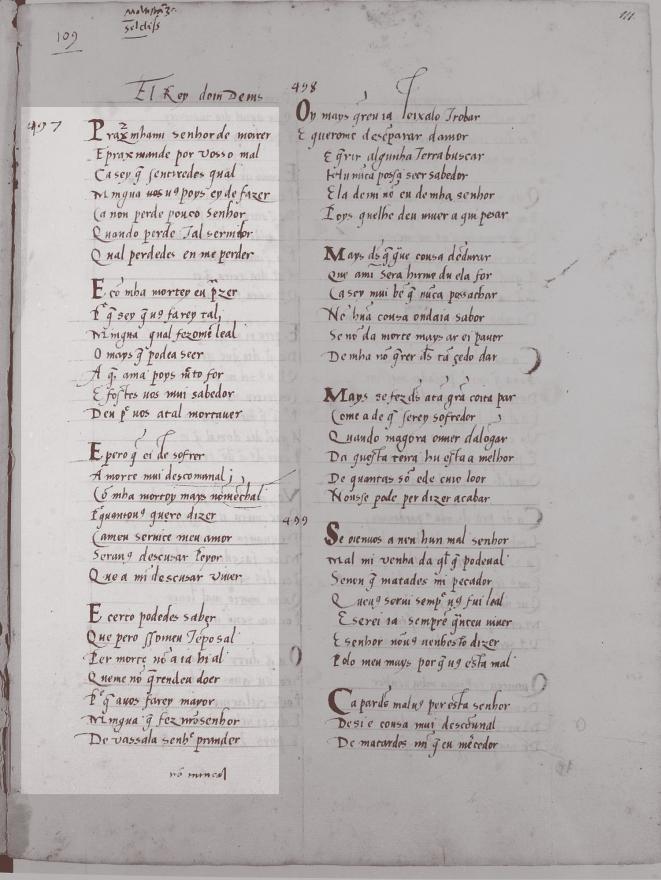 109
111
El Rey dom Denis
497
Praz mhami senhor de moirer
E praz mande por vosso mal
Ca sey q̃ sentiredes qual
Mingua vos u9 poys ey de fazer
Ca non perde pouco senhor
Quando perde Tal seruidor
Qual perdedes en me perder
E cõ mha mortey eu p̃zer
Pᵉ q̃ sey q̃ u9 farey tal
Mingua qual fezome leal
O mays q̃ podea seer
A q̃ ama poys mᵒto for
E fostes vos mui sabedor
Deu pᵉ vos atal mortauer
E pero q̃ ei de sofrer
A morte mui descomunal
Cõ mha mortoy mays nonechal
Pᵉ quantou9 quero dizer
Cameu seruice meu amor
Seran9 descusar peyor
Que a mi descusar viuer
E certo podedes saber
Que pero ssomeu Tẽpo sal
Per morte nõ a ia hi al
Queme nõ q̃rendeu doer
Pᵉ q̃ auos farey mayor
Mingua q̃ fez nrõsenhor
De vassala senhᵉ prander
498
Oy mays q̃reu ia leixalo Trobar
E querome desẽparar damor
E q̃rir algunha Terra buscar
Hu nũca possa seer sabedor
Ela demi nẽ eu de mha senhor
Poys quelhe deu uiuer a qui pesar
Mays d̃s q̃ g̃ue cousa dẽdurar
Que ami sera hirme du ela for
Ca sey mui bẽ q̃ nũca possachar
Nẽ hũa cousa ondaia sabor
Se nõ da morte mays ar ei pauor
De mha nõ q̃rer d̃s tã çedo dar
Mays se fez d̃s atã grã coita par
Come a de q̃ serey sofredor
Quando magora ouuer dalõgar
Da questa terra hu esta a melhor
De quantas sõ ede cuio loor
Nonsse pode per dizer acabar
499
Se oieuos a nen hun mal senhor
Mal mi venha da q̃l q̃ podeual
Senon q̃ matades mi pecador
Queu9 serui sempᵉ u9 fui leal
E serei ia sempre q̃nteu uiuer
E senhor nõu9 uenhesto dizer
Polo meu mays por q̃ u9 esta mal
Ca pards malu9 per esta senhor
Desi e cousa mui descõunal
De matardes mi q̃ eu mẽcedor